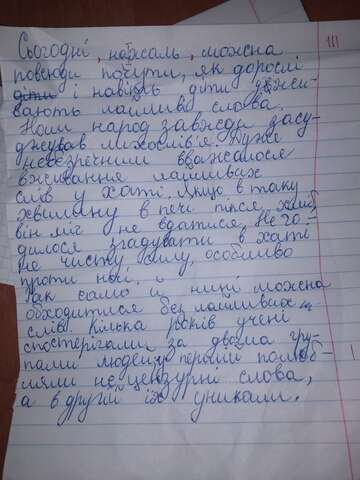 Сьогодні, на жаль, можна
повсюди почути, як дорослі
діти і навіть діти вжи-
вають лайливі слова.
Наш народ завжди засу-
джував лихослів'я. Дуже
небезпечним вважалося
вживання лайливих
слів у хаті. Якщо в таку
хвилину в печі пікся, хліб,
він міг не вдатися. Не го-
дилося згадувати в хаті
не чисту силу, особливо
проти ночі.
Так само и нині можна
обходитися без лайливих
слів. Кілька років учені
спостерігали за двома гру-
пами людей у першій
ляли не цензурні слова,
а в другій їх уникали.